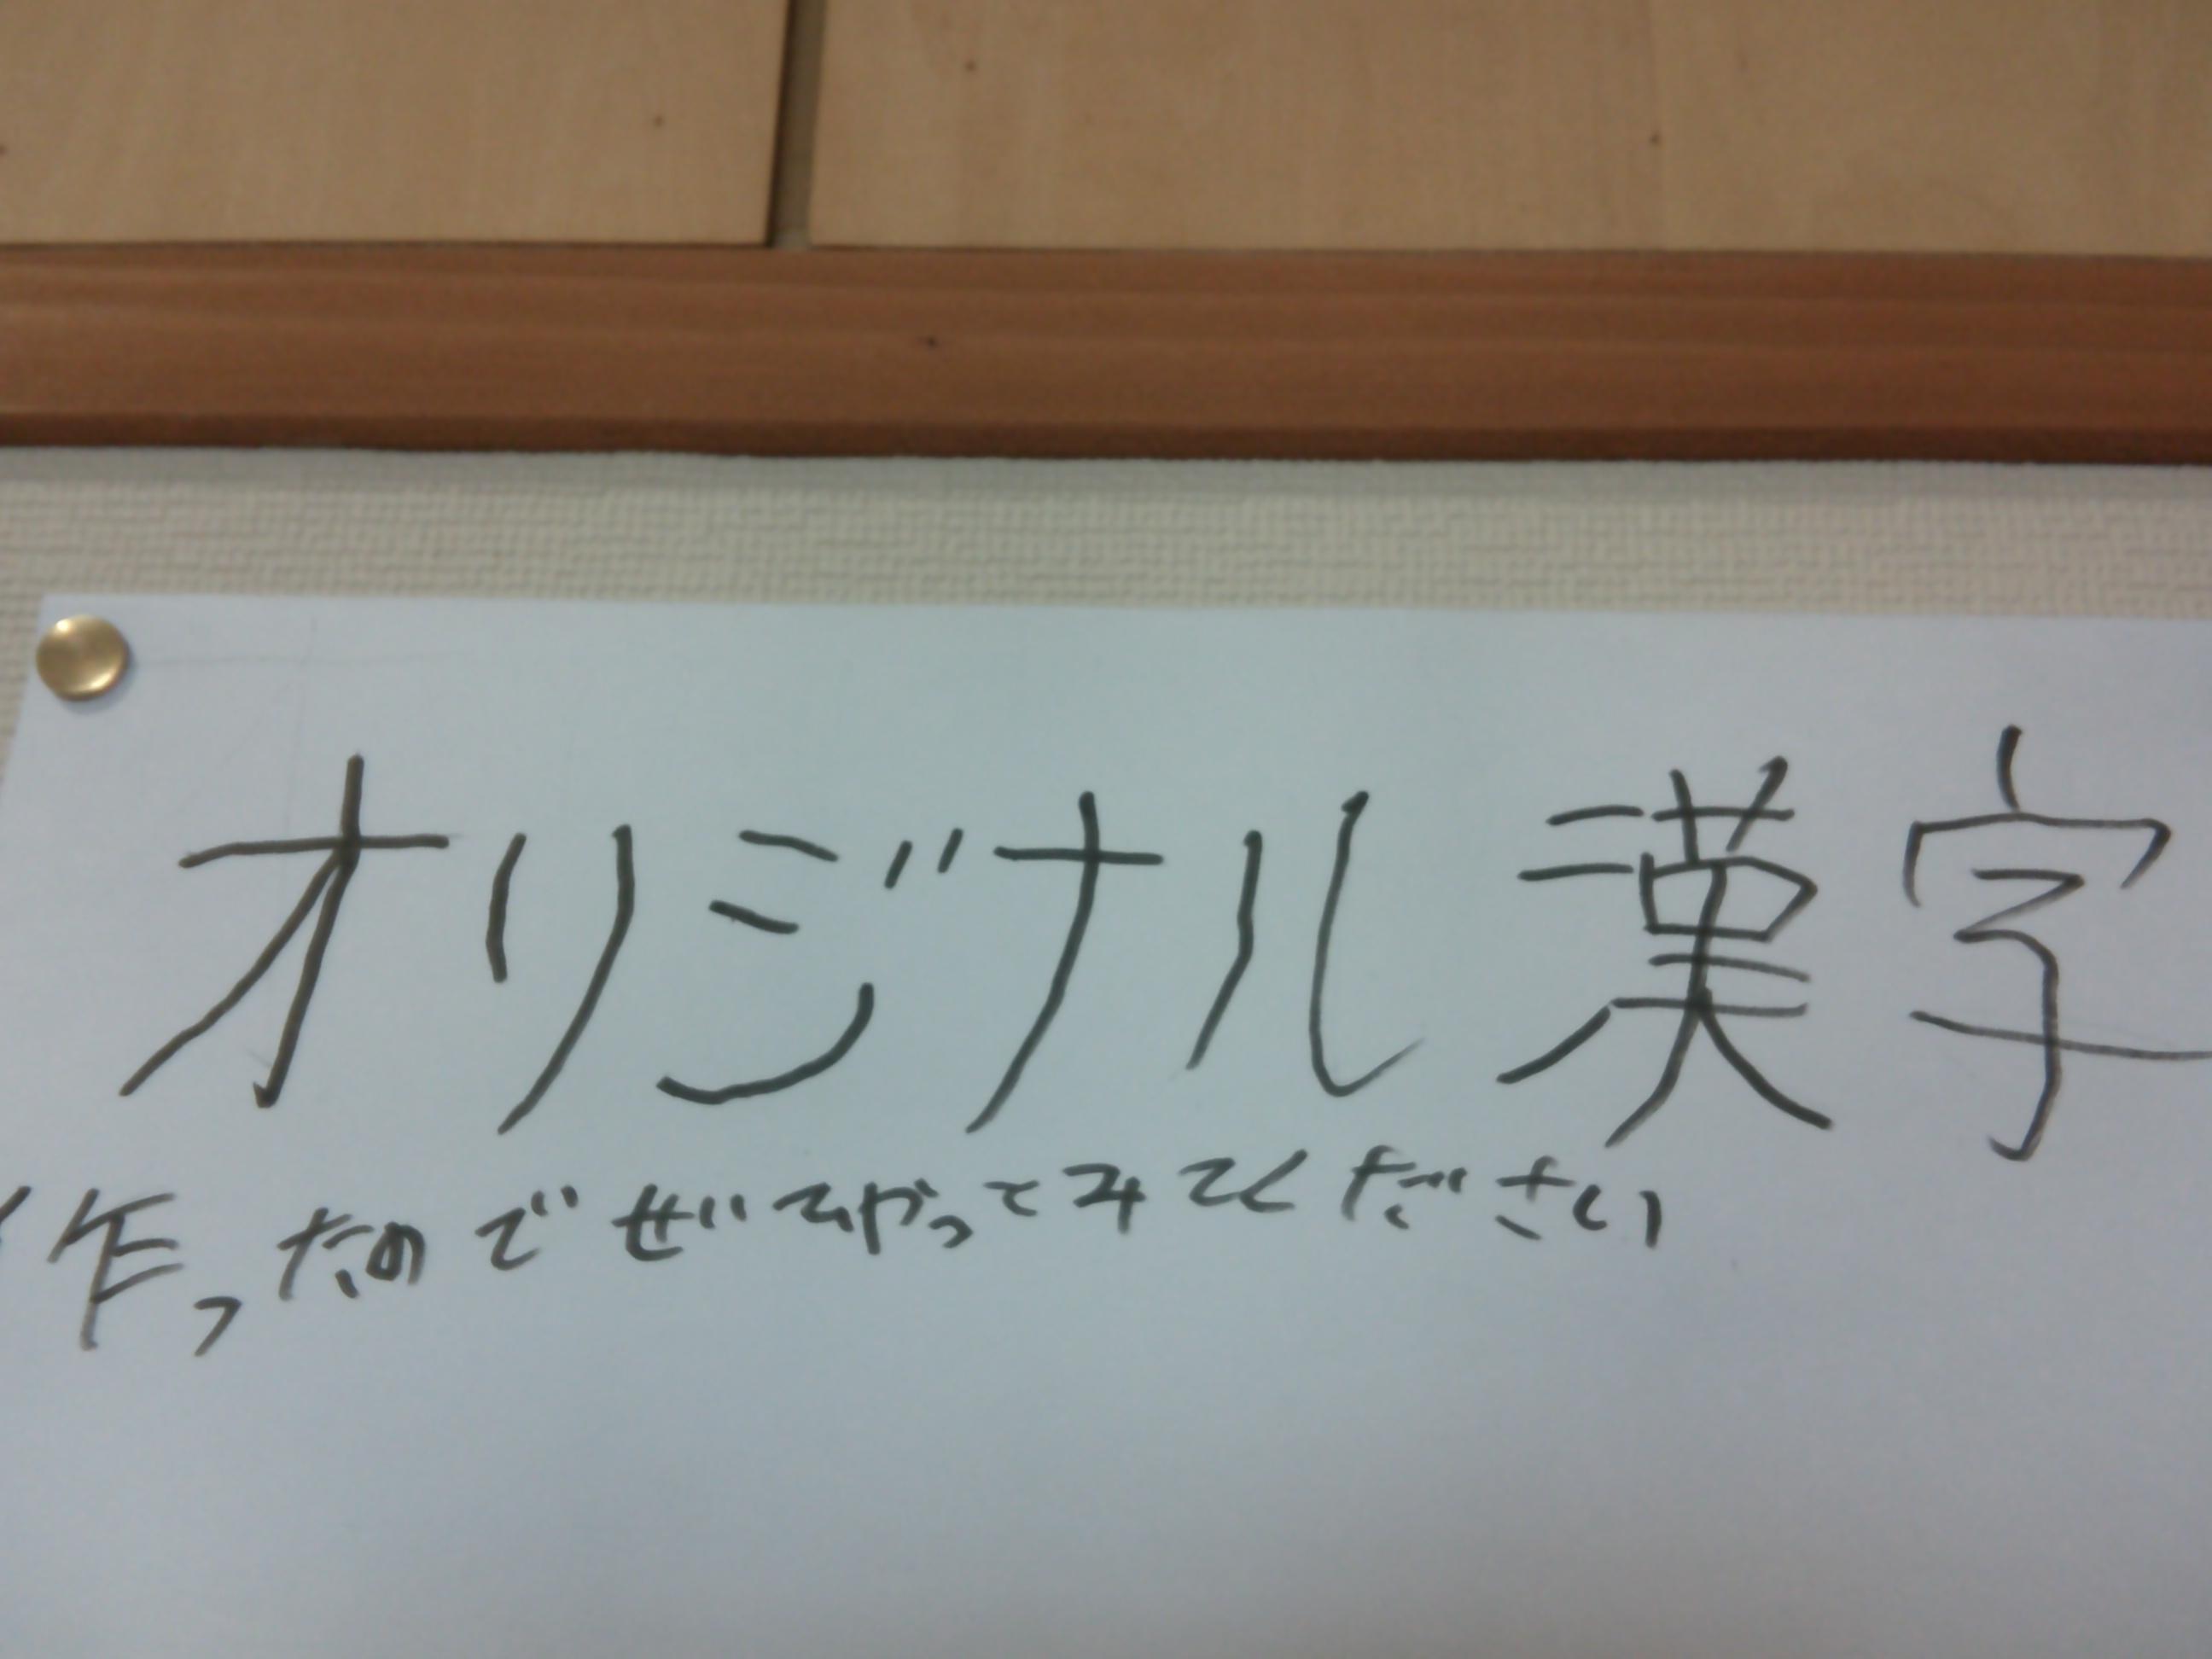 オリジナル漢字
作ったのでぜひやってみてください